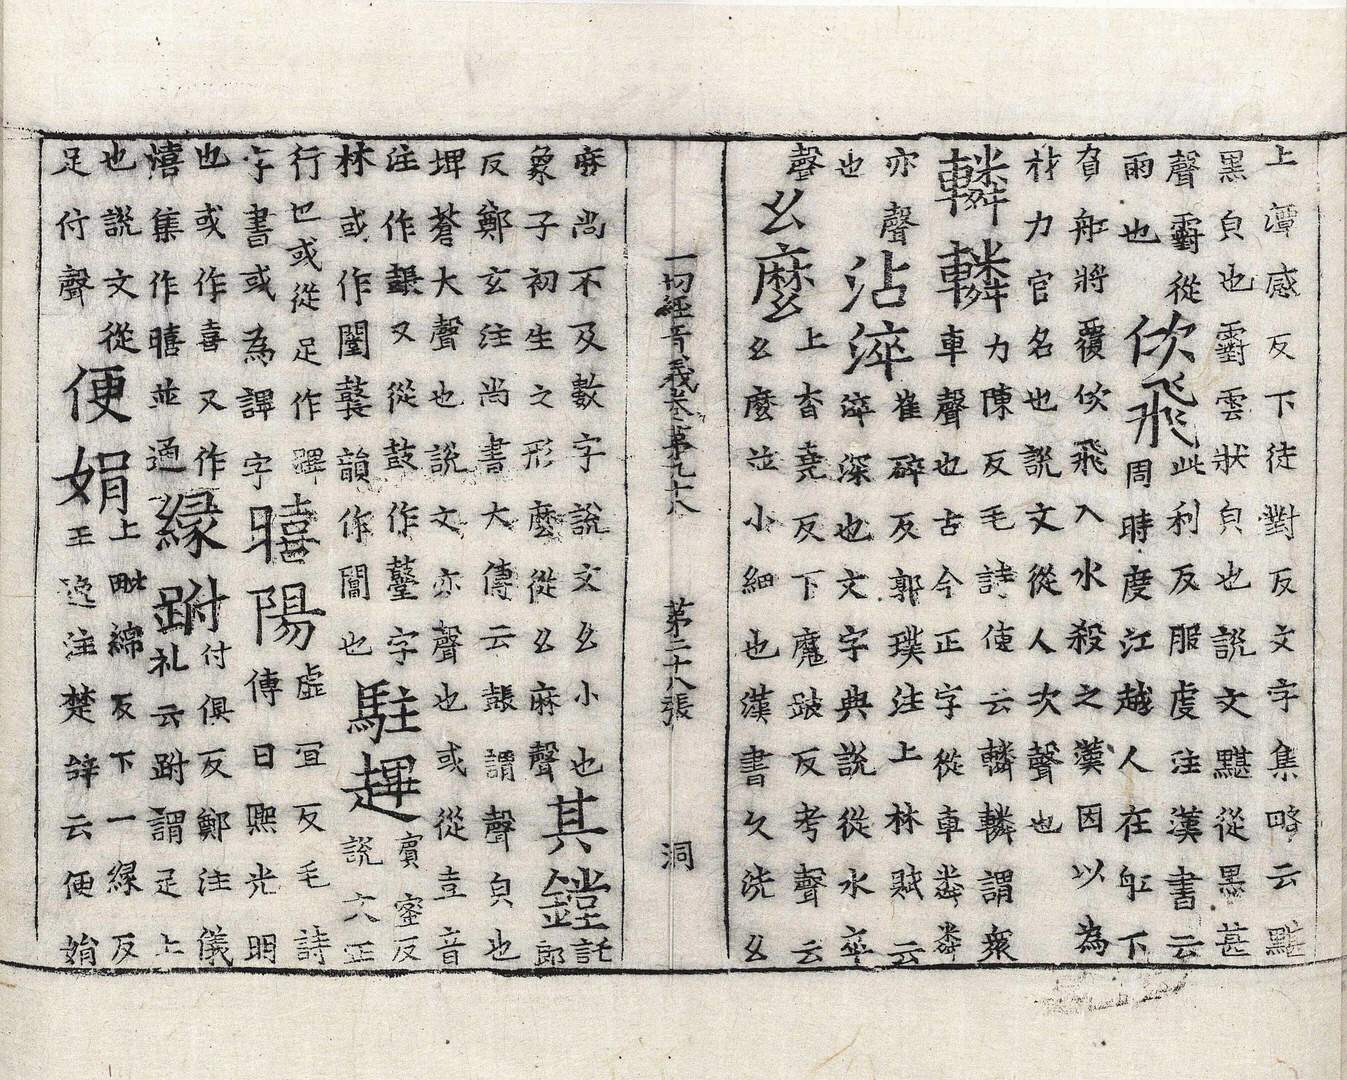 上潭感反下徒對反文字集略云黮
黒皃也䨴雲狀皃也說文黮從黒甚
聲䨴從
雨也
佽飛
此利反服虔注漢書云
周時度江越人在舡下
負舡將覆佽飛入水殺之漢因以為
材力官名也說文從人次聲也
轔轔
力陳反毛詩傳云轔轔謂衆
車聲也古今正字從車粦粦
亦聲
也
沾淬
崔碎反郭璞注上林賦云
淬深也文字典說從水卒
聲
幺麼
上杳堯反下魔跛反考聲云
幺麼並小細也漢書久洗幺
一切經音義卷第九十八 第二十八張 洞
麻尚不及數字說文幺小也
象子初生之形麼從幺麻聲
其鏜
託
郎
反鄭玄注尚書大傳云鼞謂聲皃也
埤蒼大聲也說文亦聲也或從壴音
注作鼞又從鼓作鼞字
林或作闛韻作闛也
駐
賓蜜反
說文正
行也或從足作
字書或為字
暿陽
虛宜反毛詩
傳曰熙光明
也或作喜又作
熺集作暿並通
緣跗
付俱反鄭注儀
礼云跗謂足上
也說文從
足付聲
便娟
上毗綿反下一緣反
王逸注楚辭云便娟